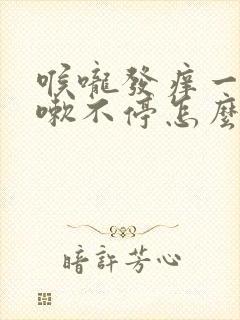 喉嚨發痒一
嗽不停怎麼
暗許芳心